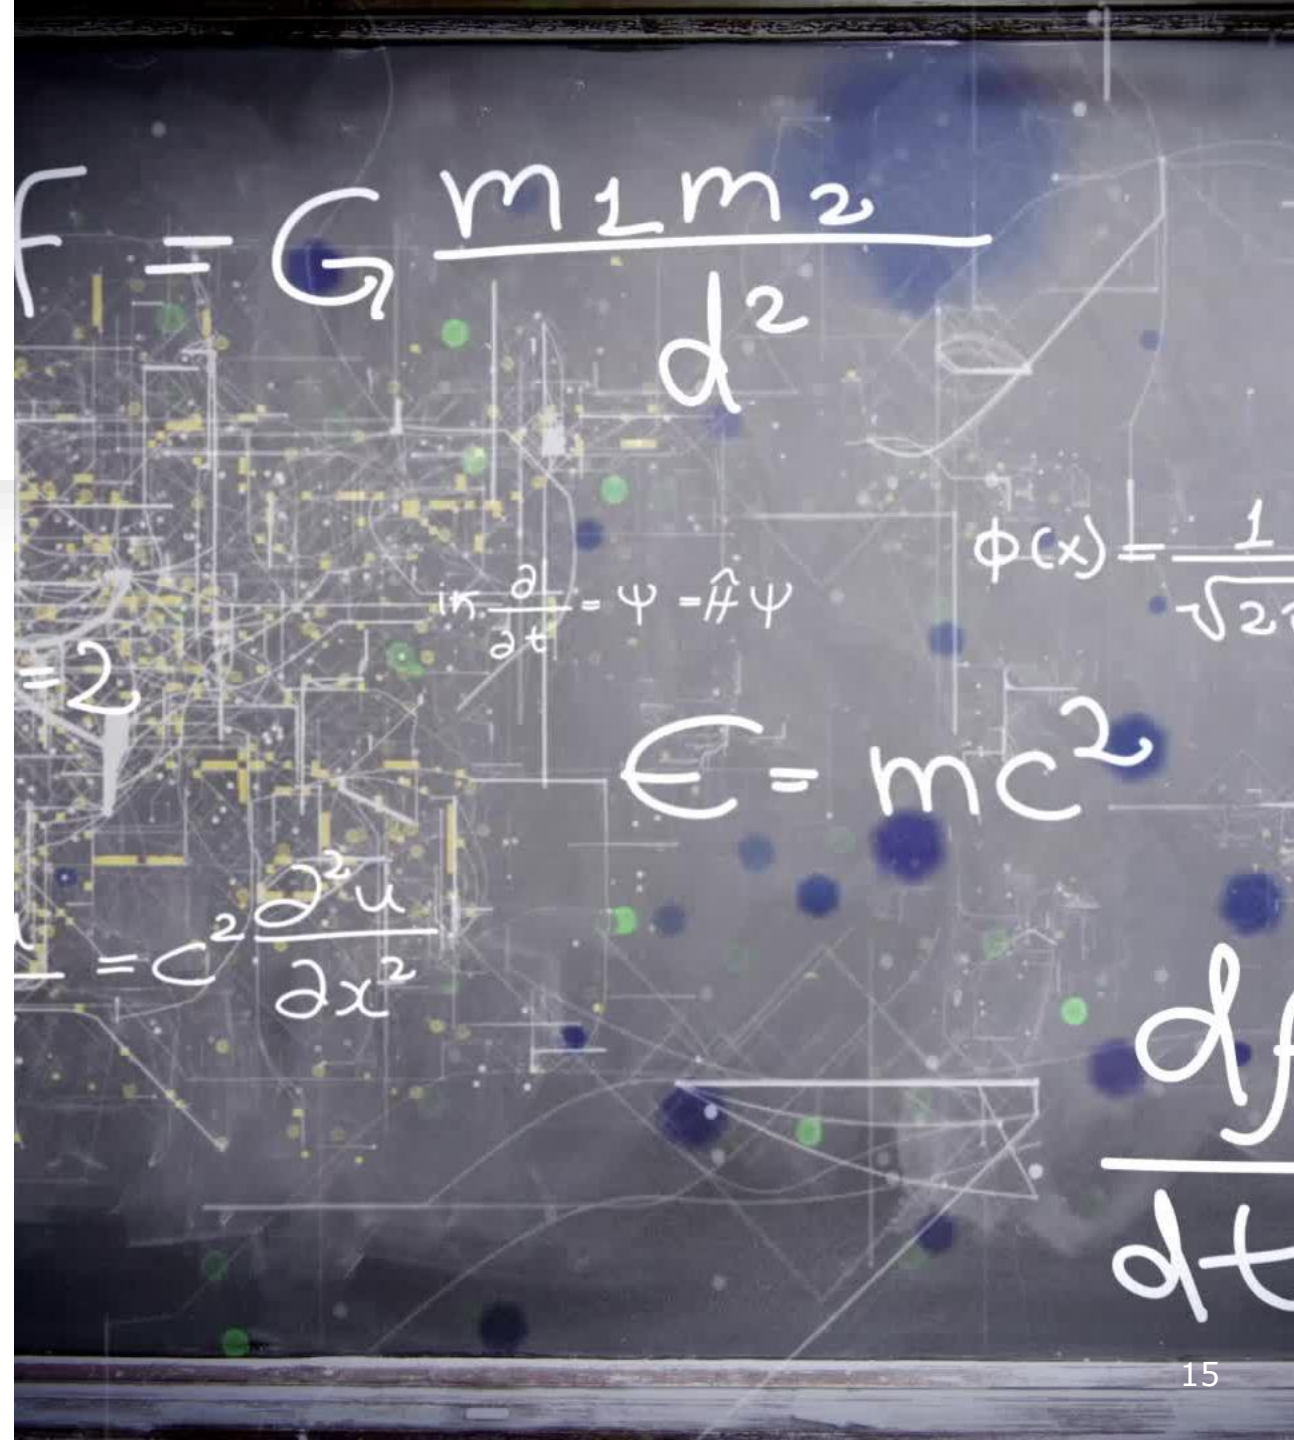 F = G m1 m2 / d²
ϕ(x) = 1 / √2
iħ ∂ / ∂t = Ψ = Ĥ Ψ
= 2
E = mc²
= c² ∂²u / ∂x²
df / dt
15